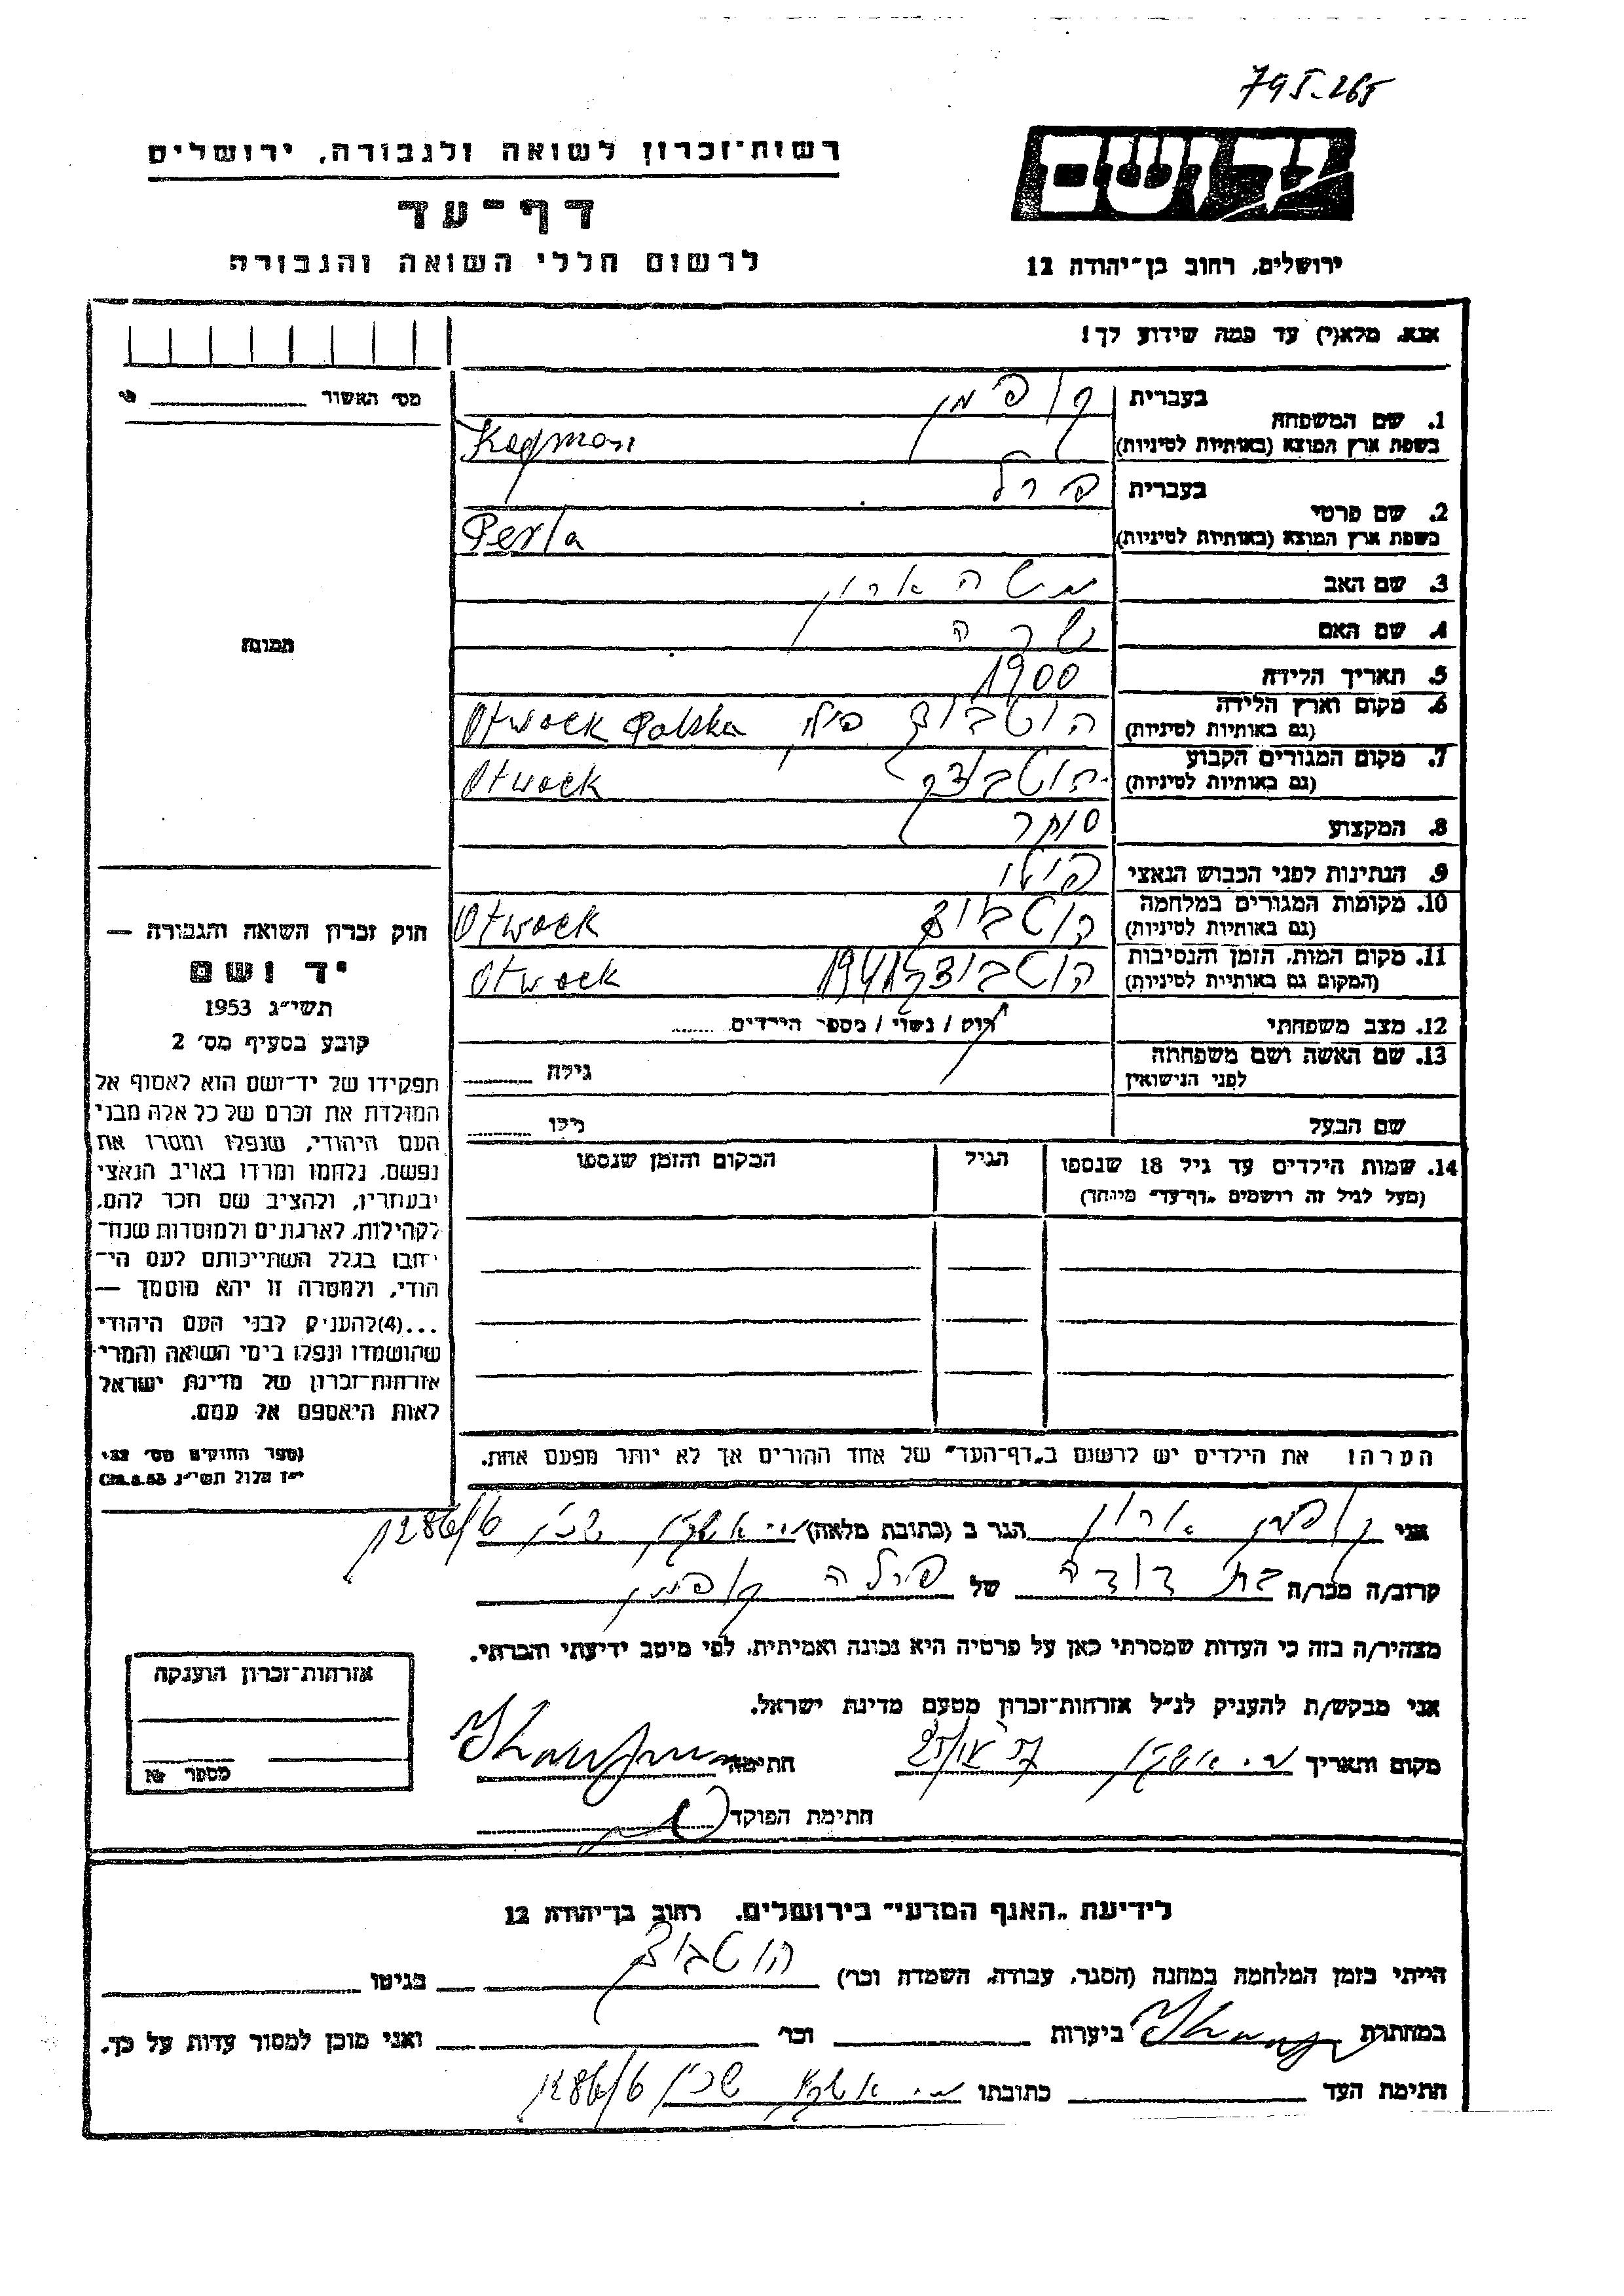 795-265
רשות־זכרון לשואה ולגבורה, ירושלים
דף־עד
לרשום חללי השואה והגבורה
יד ושם
ירושלים, רחוב בן־יהודה 12
אנא, מלא(י) עד כמה שידוע לך!
מס׳ האשור
1. שם המשפחה
בעברית קופמן
בשפת ארץ המוצא (באותיות לטיניות)
2. שם פרטי
בעברית פרל
בשפת ארץ המוצא (באותיות לטיניות) Perla
3. שם האב משה ארון
4. שם האם שרה
5. תאריך הלידה 1900
6. מקום וארץ הלידה
(גם באותיות לטיניות) Otwock Polska
7. מקום המגורים הקבוע
(גם באותיות לטיניות) Otwock
8. המקצוע סוחר
9. הנתינות לפני הכבוש הנאצי
10. מקומות המגורים במלחמה
(גם באותיות לטיניות) Otwock
11. מקום המות, הזמן והנסיבות
(המקום גם באותיות לטיניות) 1941 Otwock
12. מצב משפחתי רווק / נשוי / מספר הילדים
13. שם האשה ושם משפחתה
לפני הנישואין גילה
שם הבעל גילו
14. שמות הילדים עד גיל 18 שנספו
(מעל לגיל זה רושמים „דף־עד״ מיוחד)
הגיל
המקום והזמן שנספו
הערה: את הילדים יש לרשום ב„דף־העד״ של אחד ההורים אך לא יותר מפעם אחת.
תמונה
חוק זכרון השואה והגבורה —
יד ושם
תשי״ג 1953
קובע בסעיף מס׳ 2
תפקידו של יד־ושם הוא לאסוף אל
המולדת את זכרם של כל אלה מבני
העם היהודי, שנפלו ומסרו את
נפשם, נלחמו ומרדו באויב הנאצי
ובעוזריו, ולהציב שם וזכר להם,
לקהילות, לארגונים ולמוסדות שנח־
רבו בגלל השתייכותם לעם הי־
הודי, ולמטרה זו יהא מוסמך —
...(4)להעניק לבני העם היהודי
שהושמדו ונפלו בימי השואה והמרי
אזרחות־זכרון של מדינת ישראל
לאות היאספם אל עמם.
(ספר החוקים מס׳ 132,
י״ז אלול תשי״ג 28.8.53)
אני קופמן ארון הגר ב (כתובת מלאה) 1286/6
קרוב/ה מכר/ה בת דודה של פרלה קופמן
מצהיר/ה בזה כי העדות שמסרתי כאן על פרטיה היא נכונה ואמיתית, לפי מיטב ידיעתי והכרתי.
אני מבקש/ת להעניק לנ״ל אזרחות־זכרון מטעם מדינת ישראל.
מקום ותאריך חתימה
חתימת הפוקד
אזרחות־זכרון הוענקה
מספר №
לידיעת „האגף המדעי״ בירושלים, רחוב בן־יהודה 12
הייתי בזמן המלחמה במחנה (הסגר, עבודה, השמדה וכו׳) בגיטו
במחתרת ביערות וכו׳ ואני מוכן למסור עדות על כך.
חתימת העד כתובתו 1286/6